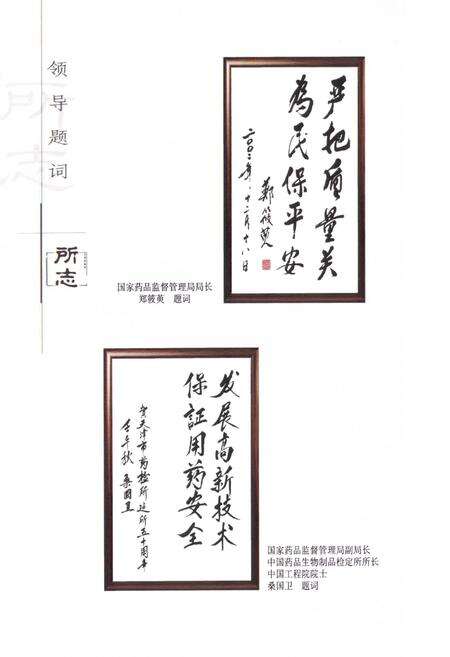 领导题词
所志
所志
严把质量关
为民保平安
二〇〇二年十二月十八日
郑筱萸
国家药品监督管理局局长
郑筱萸 题词
发展高新技术
保证用药安全
贺天津市药检所建所五十周年
壬午秋 桑国卫
国家药品监督管理局副局长
中国药品生物制品检定所所长
中国工程院院士
桑国卫 题词